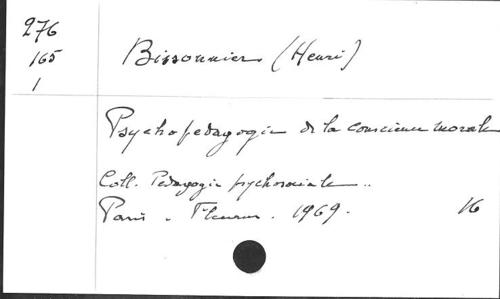 276
165
1
Bissonnier (Henri)
Psychopedagogie de la conscience morale
Coll. Pedagogie psychosociale ..
Paris . Fleurus . 1969 . 16